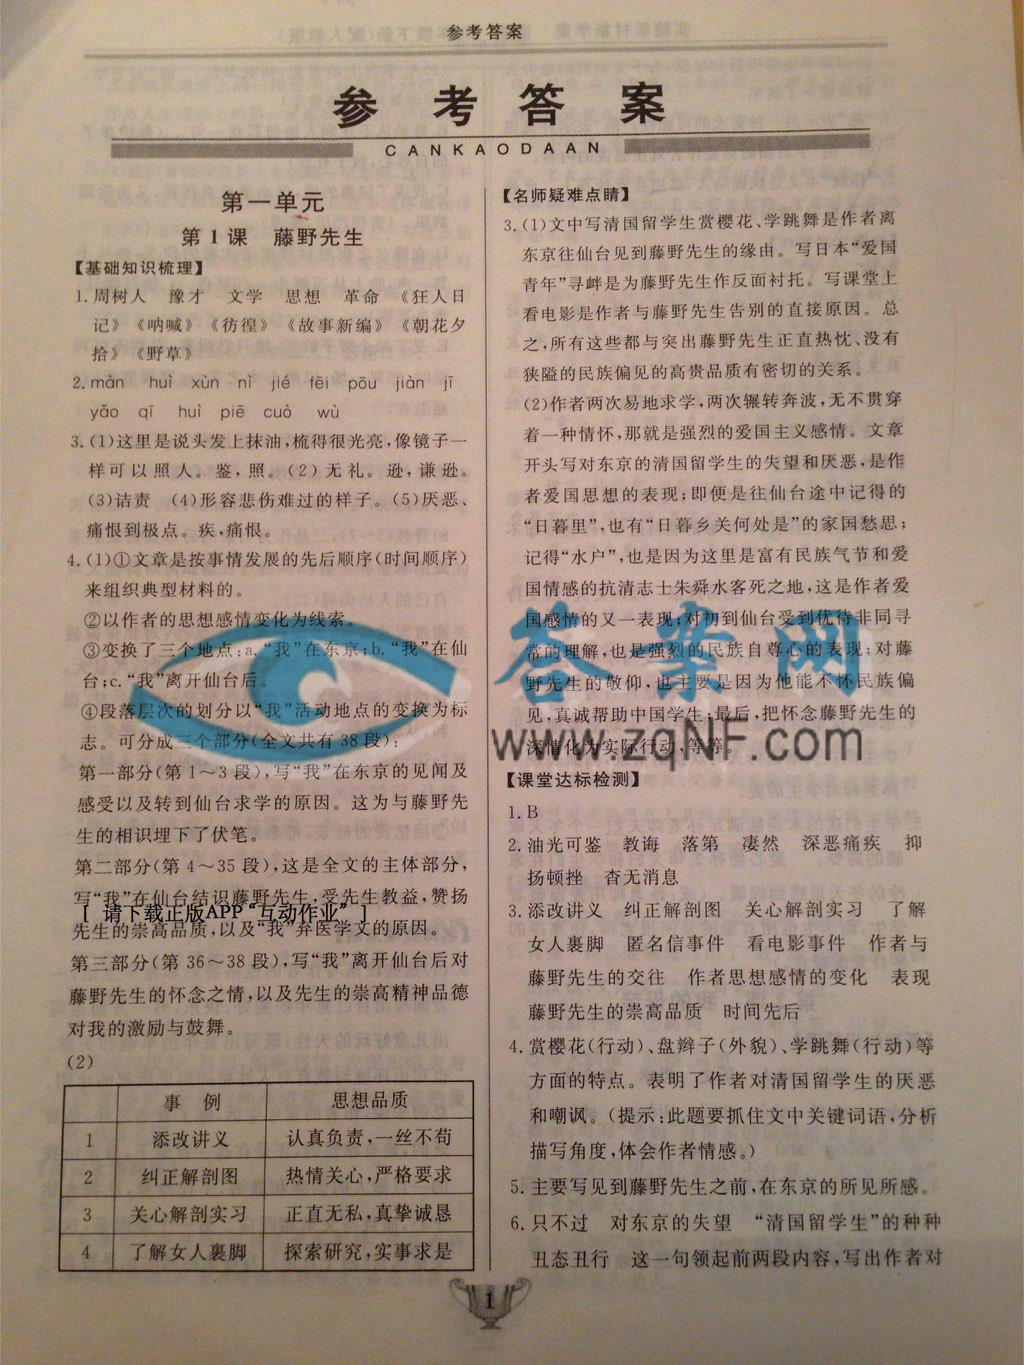 参考答案
参考答案
CANKAODAAN
第一单元
第1课 藤野先生
【基础知识梳理】
1.周树人 豫才 文学 思想 革命 《狂人日
记》《呐喊》《彷徨》《故事新编》《朝花夕
拾》《野草》
2.màn huì xùn nì jié fěi pōu jiàn jī
yǎo qī huì piē cuò wù
3.(1)这里是说头发上抹油,梳得很光亮,像镜子一
样可以照人。鉴,照。(2)无礼。逊,谦逊。
(3)诘责 (4)形容悲伤难过的样子。(5)厌恶、
痛恨到极点。疾,痛恨。
4.(1)①文章是按事情发展的先后顺序(时间顺序)
来组织典型材料的。
②以作者的思想感情变化为线索。
③变换了三个地点:a.“我”在东京;b.“我”在仙
台;c.“我”离开仙台后。
④段落层次的划分以“我”活动地点的变换为标
志。可分成三个部分(全文共有38段):
第一部分(第1～3段),写“我”在东京的见闻及
感受以及转到仙台求学的原因。这为与藤野先
生的相识埋下了伏笔。
第二部分(第4～35段),这是全文的主体部分,
写“我”在仙台结识藤野先生,受先生教益,赞扬
[ 请下载正版APP“互动作业” ]
先生的崇高品质,以及“我”弃医学文的原因。
第三部分(第36～38段),写“我”离开仙台后对
藤野先生的怀念之情,以及先生的崇高精神品德
对我的激励与鼓舞。
(2)
事例 思想品质
1 添改讲义 认真负责,一丝不苟
2 纠正解剖图 热情关心,严格要求
3 关心解剖实习 正直无私,真挚诚恳
4 了解女人裹脚 探索研究,实事求是
【名师疑难点睛】
3.(1)文中写清国留学生赏樱花、学跳舞是作者离
东京往仙台见到藤野先生的缘由。写日本“爱国
青年”寻衅是为藤野先生作反面衬托。写课堂上
看电影是作者与藤野先生告别的直接原因。总
之,所有这些都与突出藤野先生正直热忱、没有
狭隘的民族偏见的高贵品质有密切的关系。
(2)作者两次易地求学,两次辗转奔波,无不贯穿
着一种情怀,那就是强烈的爱国主义感情。文章
开头写对东京的清国留学生的失望和厌恶,是作
者爱国思想的表现;即便是往仙台途中记得的
“日暮里”,也有“日暮乡关何处是”的家国愁思;
记得“水户”,也是因为这里是富有民族气节和爱
国情感的抗清志士朱舜水客死之地,这是作者爱
国感情的又一表现;对初到仙台受到优待非同寻
常的理解,也是强烈的民族自尊心的表现;对藤
野先生的敬仰,也主要是因为他能不怀民族偏
见,真诚帮助中国学生;最后,把怀念藤野先生的
深情化为实际行动,等等。
答案网
www.zqNF.com
【课堂达标检测】
1.B
2.油光可鉴 教诲 落第 凄然 深恶痛疾 抑
扬顿挫 杳无消息
3.添改讲义 纠正解剖图 关心解剖实习 了解
女人裹脚 匿名信事件 看电影事件 作者与
藤野先生的交往 作者思想感情的变化 表现
藤野先生的崇高品质 时间先后
4.赏樱花(行动)、盘辫子(外貌)、学跳舞(行动)等
方面的特点。表明了作者对清国留学生的厌恶
和嘲讽。(提示:此题要抓住文中关键词语,分析
描写角度,体会作者情感。)
5.主要写见到藤野先生之前,在东京的所见所感。
6.只不过 对东京的失望 “清国留学生”的种种
丑态丑行 这一句领起前两段内容,写出作者对
1